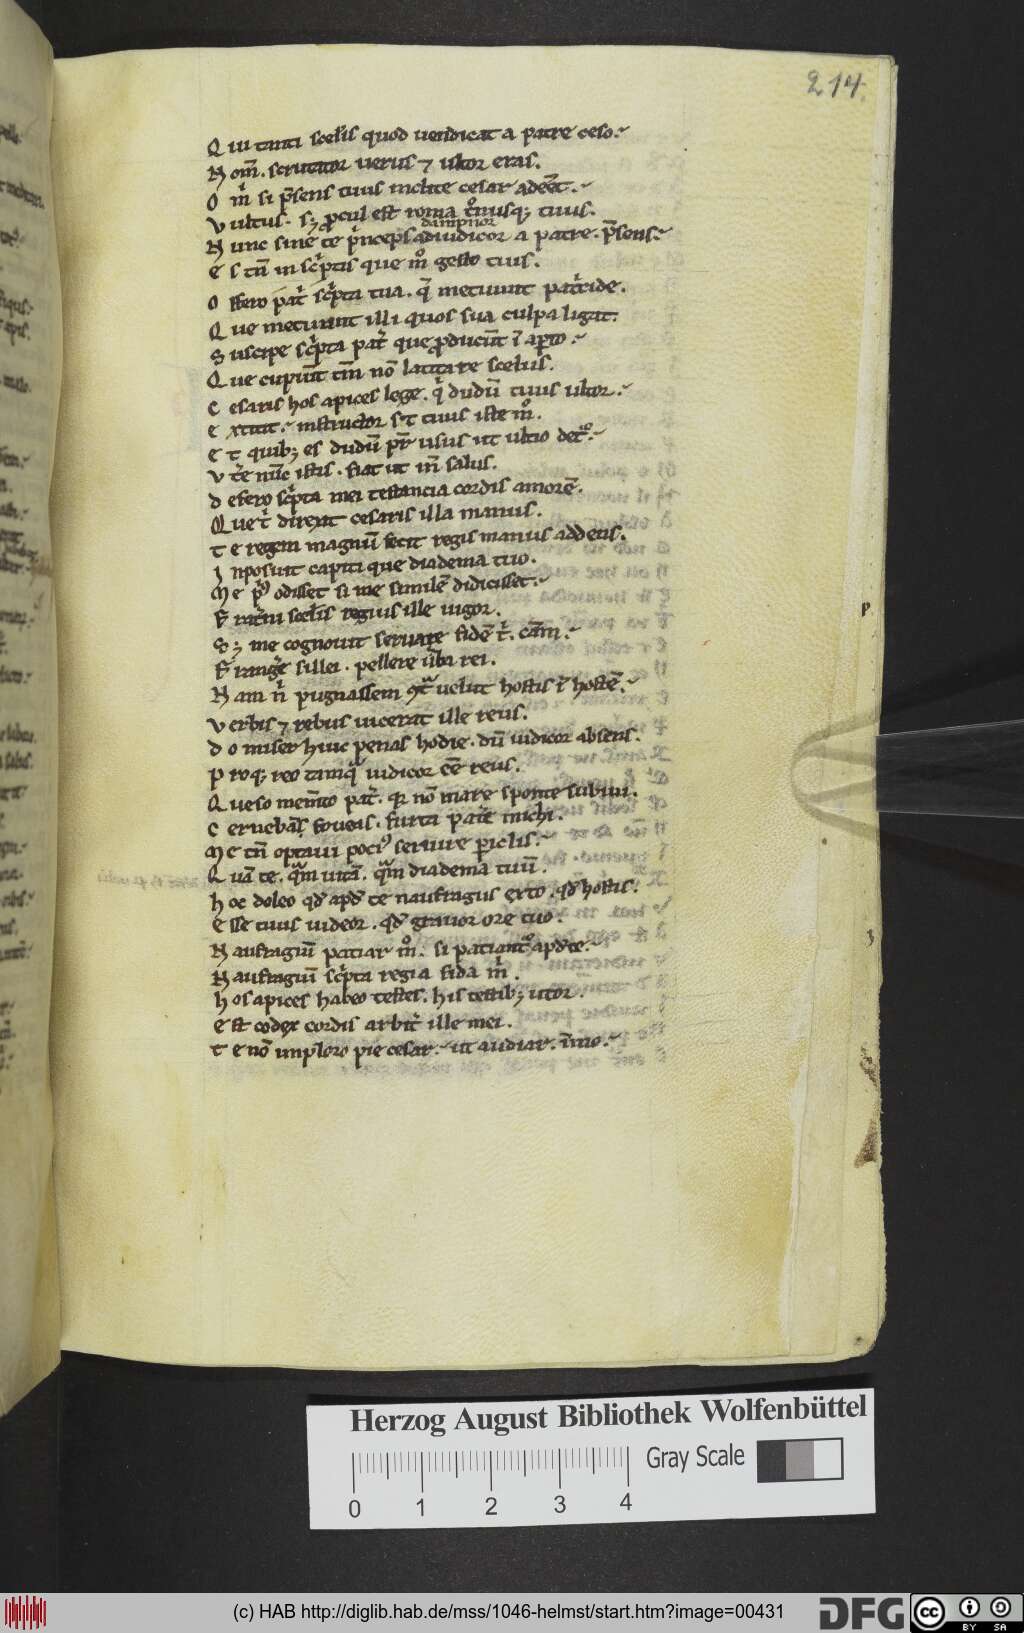 214.
Q ui tanti scel̄is quod uendicat a patre ceso.
N om̄. scrutator uerus ⁊ ultor eras.
O m̄ si p̄sens tuus inclite cesar adeēt.
V ultus. sꝫ ꝓcul est roma tuus.
dampnor
N unc sine te p̄nceps adiudicor a patre. p̄sens.
E s tn̄ in sc̄ptis que m̊ gesto tuis.
O ffero pat̄ sc̄pta tua. q̄ metuunt pat̄cide.
Q ue metuunt illi quos sua culpa ligat.
S uscipe sc̄pta pat̄ que ꝓducūt ī aꝑto.
Q ue cupiūt tm̄ nō latitare scelus.
C esaris hos apices lege. q̄ dudū tuus ultor.
E xtitit. instructor s̄t tuus iste m̊.
E t quibꝫ es dudū pr̄ usus ut ultio
V t̄e nūc istis. fiat ut in̄ salus.
D efero sc̄pta mei testancia cordis amorē.
Q ue t̄ direxit cesaris illa manus.
T e regem magnū fecit regis manus addens.
I nposuit capiti que diadema tuo.
M e odisset si me similē didicisset.
F rat̄ni scel̄is regius ille uigor.
S ꝫ me cognouit seruare fidē t̄. cām.
F ranḡe sillei. pellere ūba rei.
N am n̄ pugnassem uelut hostis ī hostē.
V erbis ⁊ rebus uicerat ille reus.
D o miser huic penas hodie. dū iudicor absens.
P roqꝫ reo tamq̄ iudicor eē reus.
Q ueso mem̄to pat̄. nō mare sponte subiui.
C eruebas foueis. furta pat̄e michi.
M e tn̄ optaui poci⁹ seruire ꝑiclis.
Q uā te. q̄m uitā. q̄m diadema tuū.
H oc doleo qd̄ apd̄ te naufragus exto. qd̄ hostis.
E sse tuus uideor. qd̄ grauor ore tuo.
N aufragiū patiar m̊. si apd̄ te.
N aufragiū sc̄pta regia fida m̄.
H os apices habeo testes. his testibꝫ utor.
E st codex cordis arbit̄ ille mei.
T e nō inploro pie cesar. ut audiar. īmo.
Herzog August Bibliothek Wolfenbüttel
Gray Scale
0 1 2 3 4
(c) HAB http://diglib.hab.de/mss/1046-helmst/start.htm?image=00431
DFG
cc BY SA